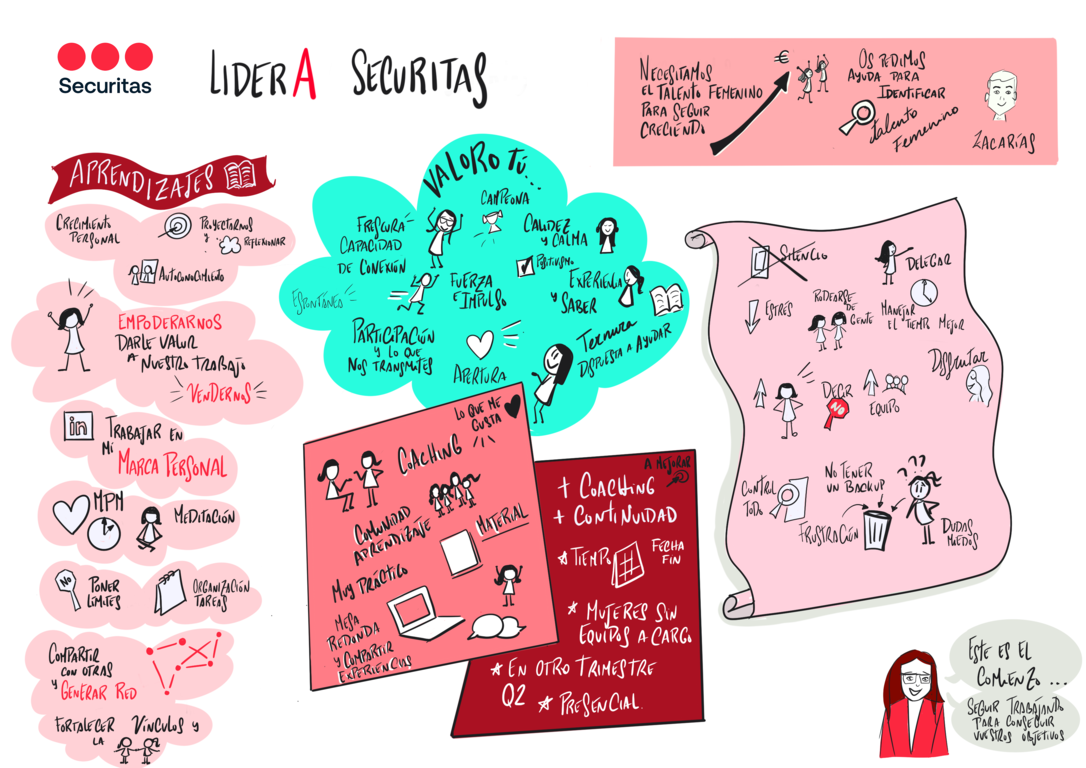 Securitas
LIDERA SECURITAS
NECESITAMOS
EL TALENTO FEMENINO
PARA SEGUIR
CRECIENDO
€
OS PEDIMOS
AYUDA PARA
IDENTIFICAR
Talento
Femenino
ZACARÍAS
APRENDIZAJES
CRECIMIENTO
PERSONAL
PROYECTARNOS
Y
REFLEXIONAR
AUTOCONOCIMIENTO
EMPODERARNOS
DARLE VALOR
A NUESTRO TRABAJO
VENDERNOS
in
TRABAJAR EN
MI
MARCA PERSONAL
MPM
MEDITACIÓN
NO
PONER
LÍMITES
ORGANIZACIÓN
TAREAS
COMPARTIR
CON OTRAS
Y GENERAR RED
FORTALECER VÍNCULOS Y
LA
VALORO TÚ...
CAMPEONA
FRESCURA
CAPACIDAD
DE CONEXIÓN
CALIDEZ
Y CALMA
POSITIVISMO
ESPONTÁNEA
FUERZA
E IMPULSO
EXPERIENCIA
Y SABER
PARTICIPACIÓN
Y LO QUE
NOS TRANSMITES
APERTURA
Ternura
DISPUESTA A AYUDAR
LO QUE ME
GUSTA
COACHING
COMUNIDAD
APRENDIZAJE
MATERIAL
MUY PRÁCTICO
MESA
REDONDA
Y COMPARTIR
EXPERIENCIAS
A MEJORAR
+ COACHING
+ CONTINUIDAD
* TIEMPO
FECHA
FIN
* MUJERES SIN
EQUIPOS A CARGO
* EN OTRO TRIMESTRE
Q2 * PRESENCIAL
SILENCIO
DELEGAR
ESTRÉS
RODEARSE
DE
GENTE
MANEJAR
EL TIEMPO MEJOR
DISFRUTAR
DECIR
NO
EQUIPO
CONTROL
TODO
NO TENER
UN BACKUP
????
FRUSTRACIÓN
DUDAS
MIEDOS
ESTE ES EL
COMIENZO ...
SEGUIR TRABAJANDO
PARA CONSEGUIR
VUESTROS OBJETIVOS